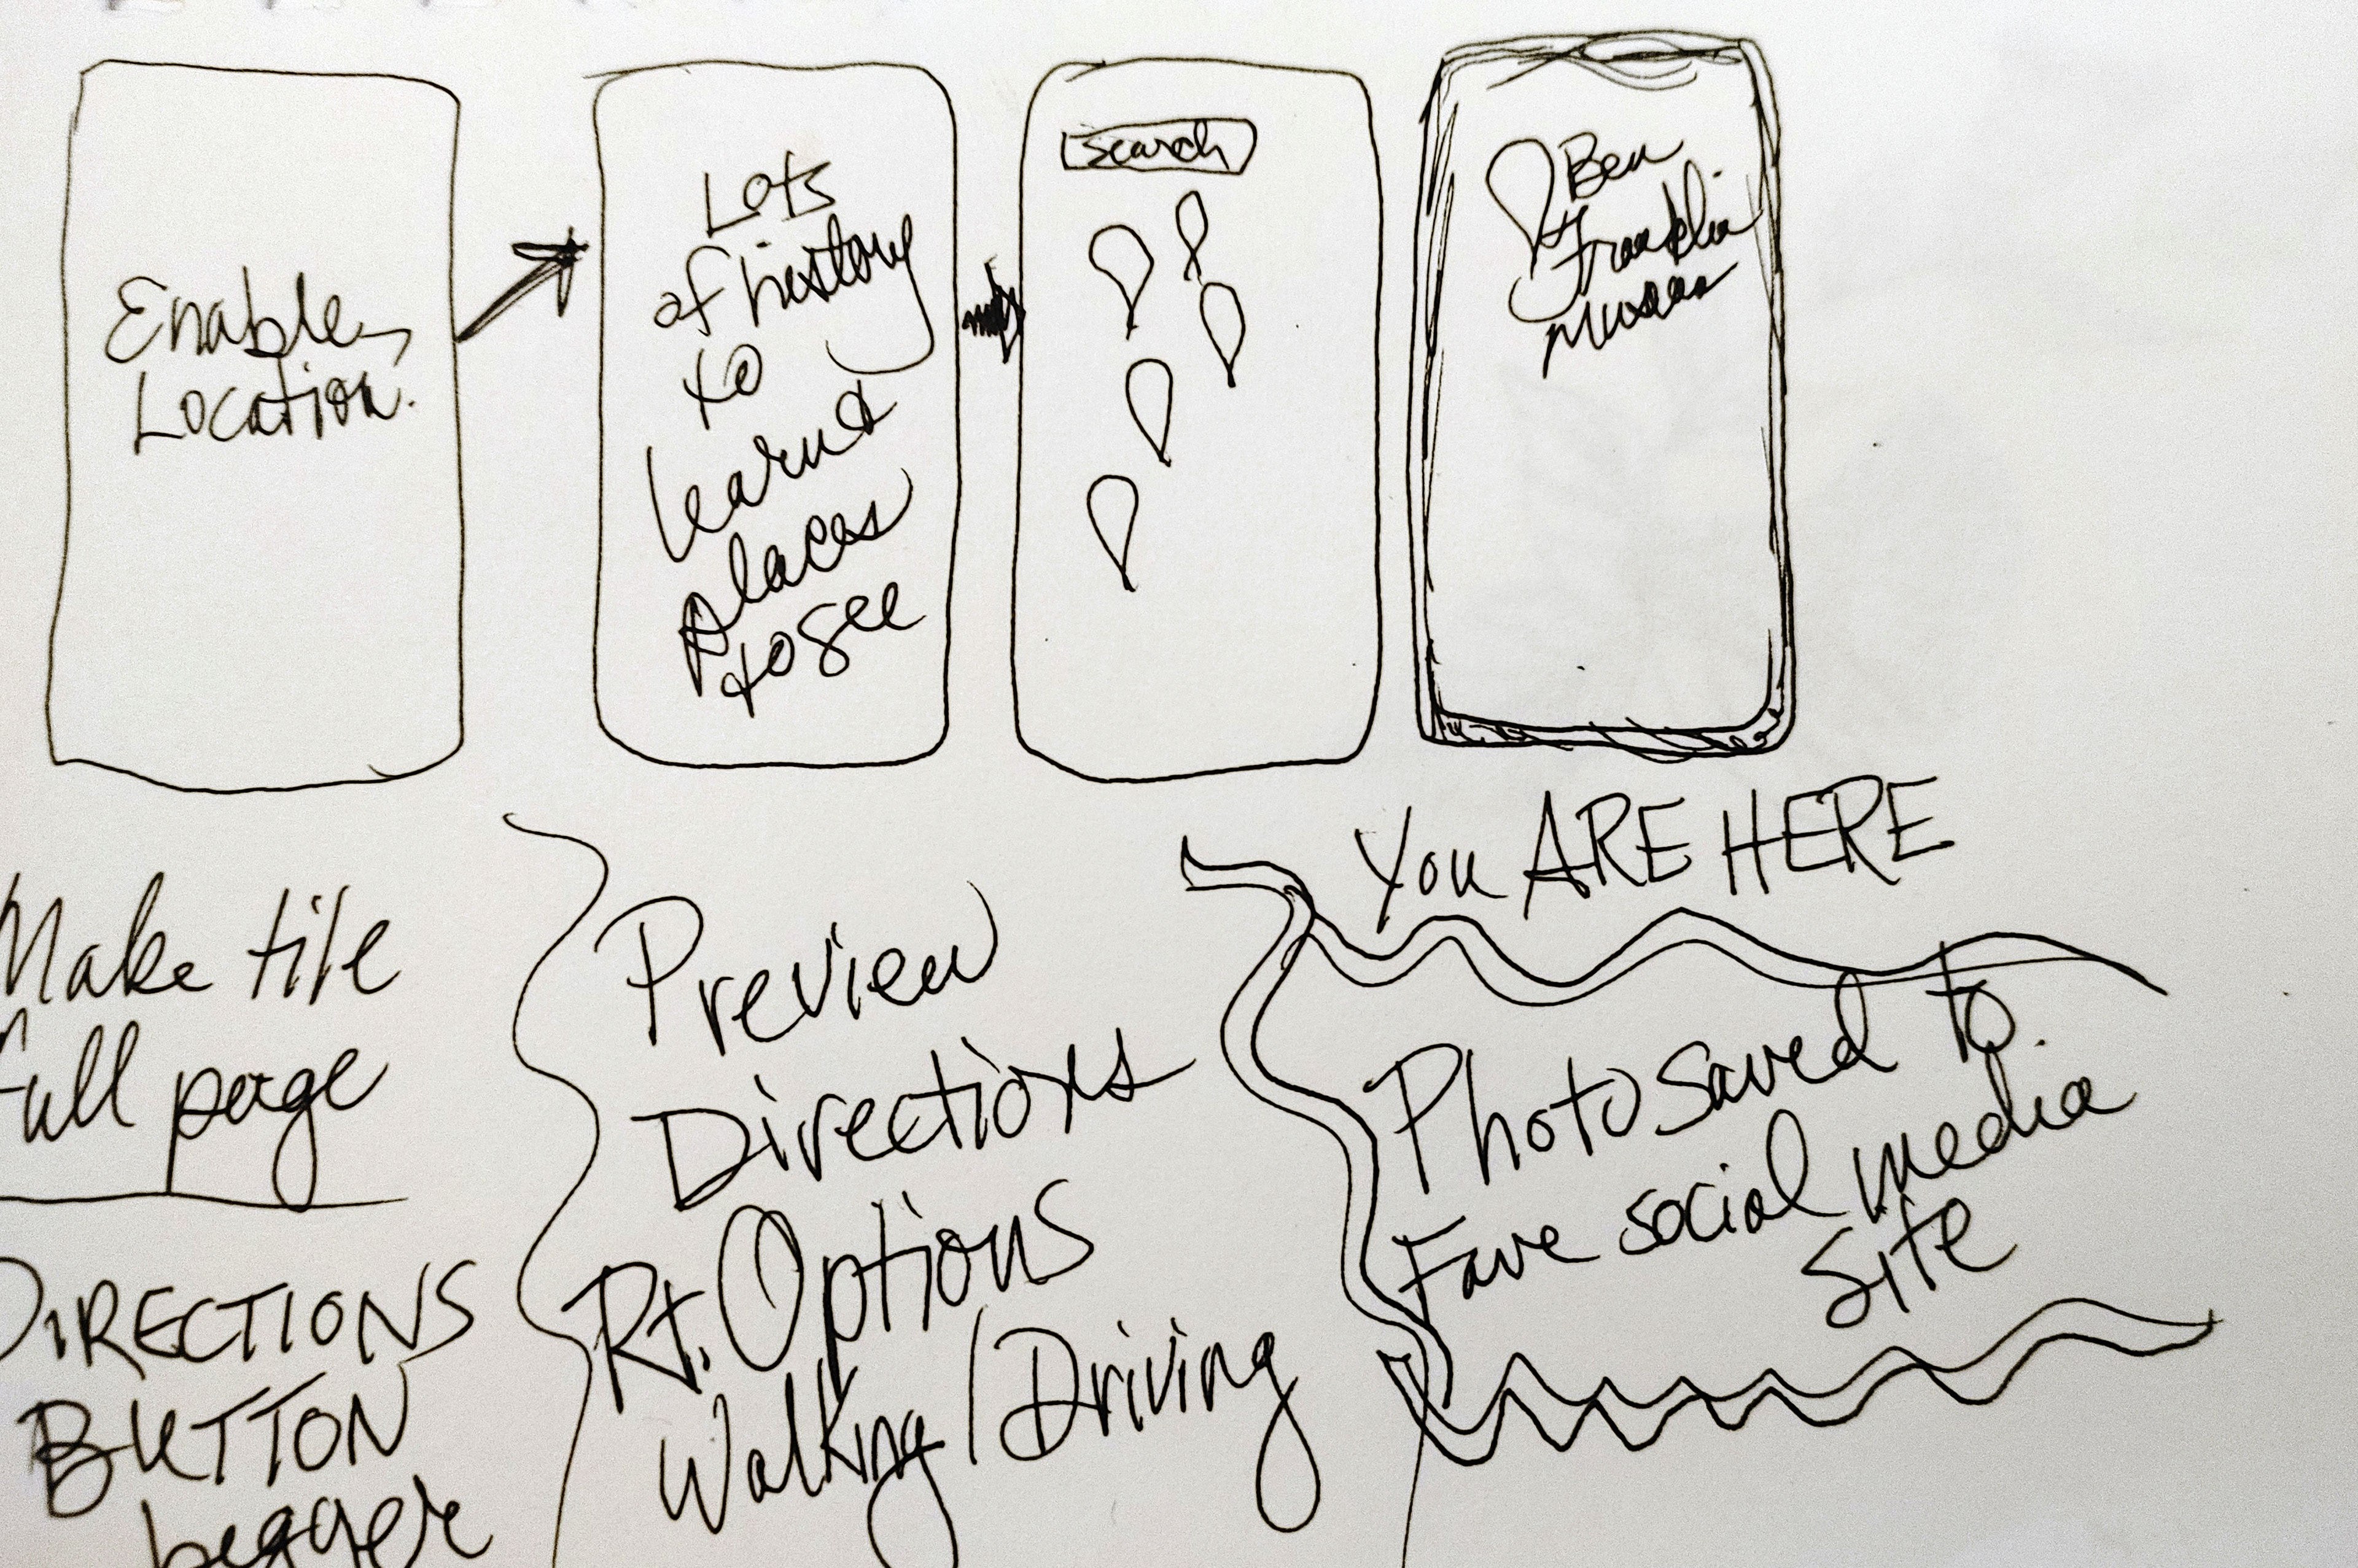 Enable
Location.
Lots
of history
to
learn &
places
to see
search
Ben
Franklin
YOU ARE HERE
Make tile
Full page
DIRECTIONS
BUTTON
bigger
Preview
Directions
Rt. Options
Walking / Driving
Photo saved to
Fave social media
Site